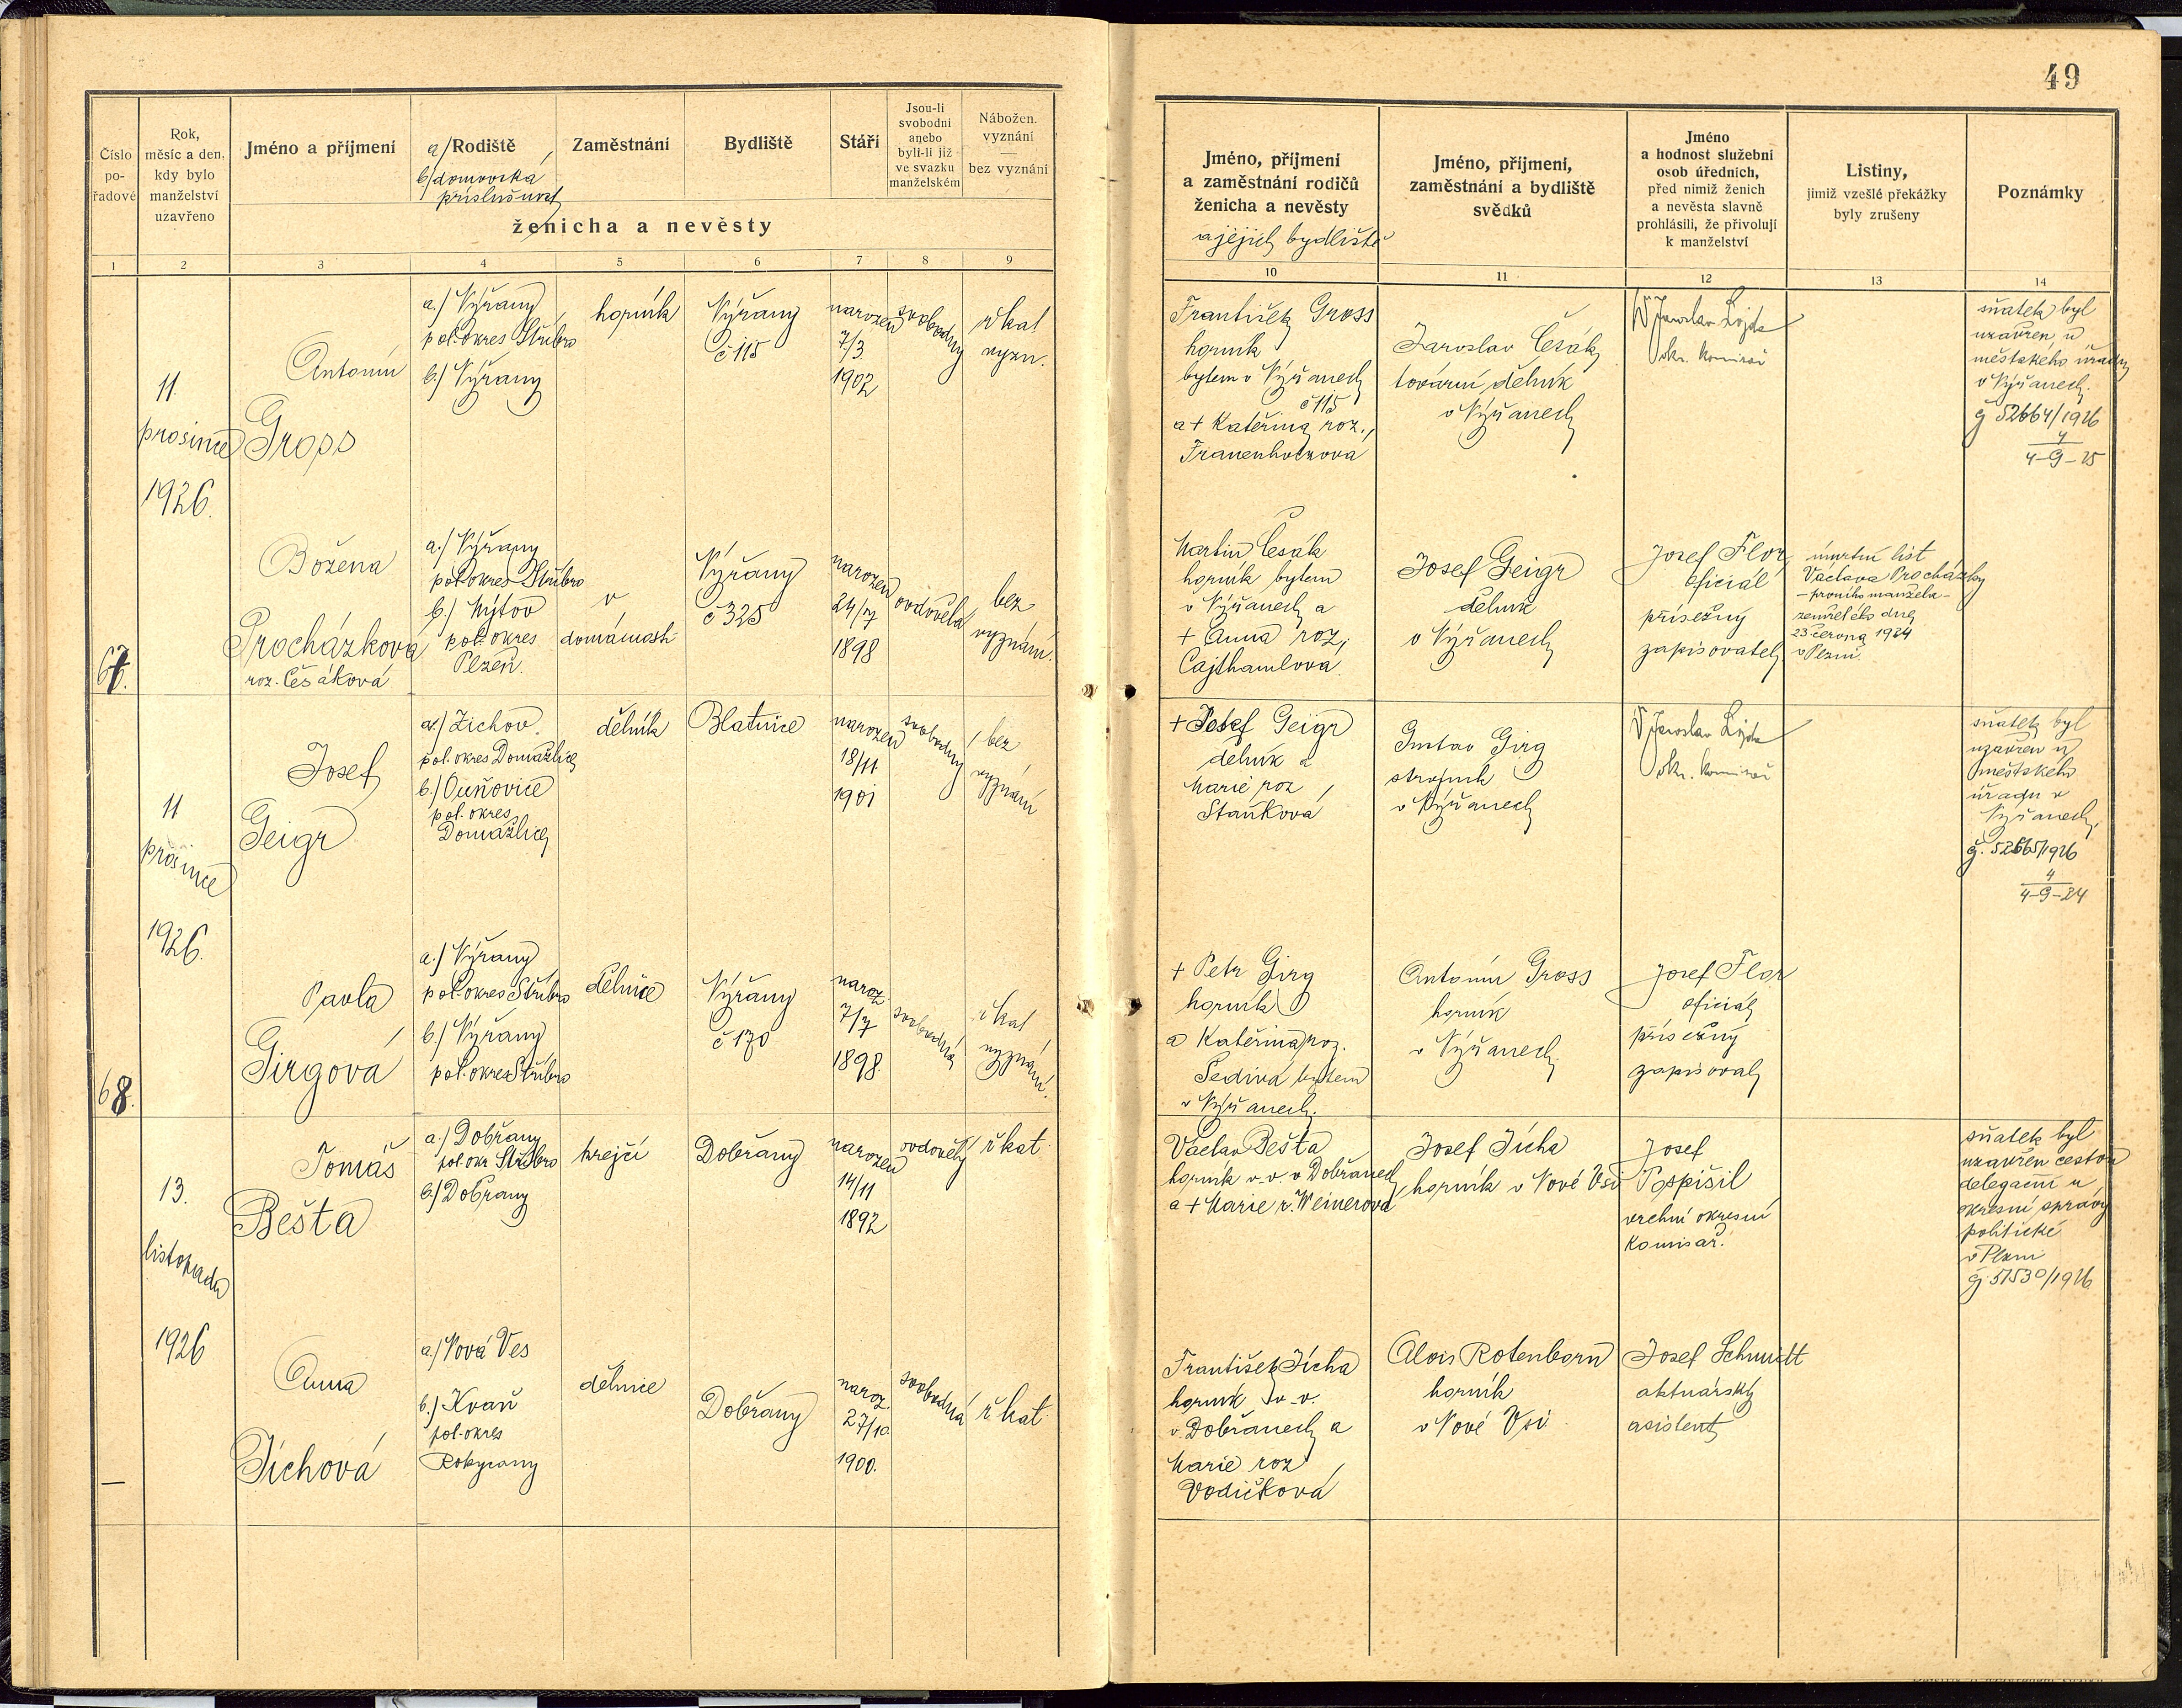 49
Číslo
po-
řadové
Rok,
měsíc a den,
kdy bylo
manželství
uzavřeno
Jméno a příjmení
a/ Rodiště
b/ domovská
příslušnost
Zaměstnání
Bydliště
Stáří
Jsou-li
svobodni
anebo
byli-li již
ve svazku
manželském
Nábožen.
vyznání
bez vyznání
ženicha a nevěsty
Jméno, příjmení
a zaměstnání rodičů
ženicha a nevěsty
a jejich bydliště
Jméno, příjmení,
zaměstnání a bydliště
svědků
Jméno
a hodnost služební
osob úředních,
před nimiž ženich
a nevěsta slavně
prohlásili, že přivolují
k manželství
Listiny,
jimiž vzešlé překážky
byly zrušeny
Poznámky
1 2 3 4 5 6 7 8 9 10 11 12 13 14
67.
11.
prosince
1926.
Antonín
Gross
a./ Nýřany
pol. okres Stříbro
b./ Nýřany
horník
Nýřany
č 115
narozen
7/3
1902
svobodný
ř kat
vyzn.
František Gross
horník
bytem v Nýřanech
č 115
a + Kateřina roz.
Frauenholzova
Jaroslav Česák
tovární dělník
v Nýřanech
Jaroslav Lojda
okr. komisař
sňatek byl
uzavřen u
městského úřadu
v Nýřanech.
čj 52664/1926
4
4-G-25
Božena
Procházková
roz. Česáková
a./ Nýřany
pol okres Stříbro
b./ Mýtov
pol. okres
Plzeň.
v
domácnosti
Nýřany
č 325
narozen
24/7
1898
ovdovělá
bez
vyznání.
Martin Česák
horník bytem
v Nýřanech a
+ Anna roz.
Cajthamlova.
Josef Geigr
dělník
v Nýřanech
Josef Flor
oficiál
přísežný
zapisovatel
úmrtní list
Václava Procházky
- prvního manžela -
zemřelého dne
23 června 1924
v Plzni.
68.
11
prosince
1926.
Josef
Geigr
a./ Zichov.
pol. okres Domažlice
b./ Ouňovice
pol. okres
Domažlice
dělník
Blatnice
narozen
18/11
1901
svobodný
bez
vyznání
+ Josef Geigr
dělník a
Marie roz
Staňkova
Gustav Girg
strojník
v Nýřanech
Jaroslav Lojda
okr. komisař
sňatek byl
uzavřen u
městského
úřadu v
Nýřanech.
čj. 52665/1926
4
4-G-24
Pavla
Girgová
a./ Nýřany
pol. okres Stříbro
b./ Nýřany
pol. okres Stříbro
dělnice
Nýřany
č 170
naroz.
7/7
1898
svobodná
ř kat
vyznání.
+ Petr Girg
horník
a Kateřina roz.
Šedivá bytem
v Nýřanech.
Antonín Gross
horník
v Nýřanech.
Josef Flor
oficiál
přísežný
zapisovatel
—
13.
listopadu
1926
Tomáš
Bešta
a./ Dobřany
pol. okr Stříbro
b./ Dobřany
krejčí
Dobřany
narozen
14/11
1892
ovdovělý
ř kat.
Václav Bešta
horník v. v. v Dobřanech
a + Marie r. Weinerova
Josef Jícha
horník v Nové Vsi
Josef
Pospíšil
vrchní okresní
komisař.
sňatek byl
uzavřen cestou
delegační u
okresní správy
politické
v Plzni
čj. 51530/1926
Anna
Jíchová
a./ Nová Ves
b./ Kvaň
pol. okres
Rokycany
dělnice
Dobřany
naroz.
27/10.
1900.
svobodná
ř kat.
František Jícha
horník v. v.
v Dobřanech a
Marie roz
Vodičková
Alois Rotenborn
horník
v Nové Vsi
Josef Schmidt
aktuárský
asistent